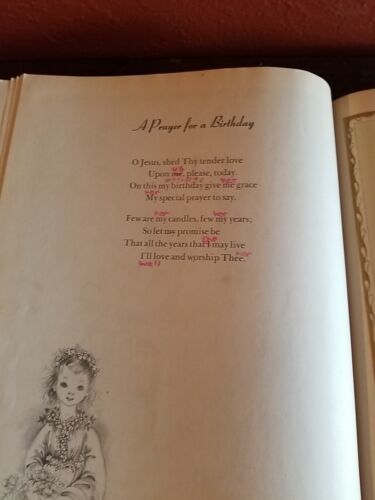 A Prayer for a Birthday
O Jesus, shed Thy tender love
us
Upon me, please, today.
her
On this my birthday give me grace
her
My special prayer to say.
her her
Few are my candles, few my years;
So let my promise be
she
That all the years that I may live
I'll love and worship Thee.